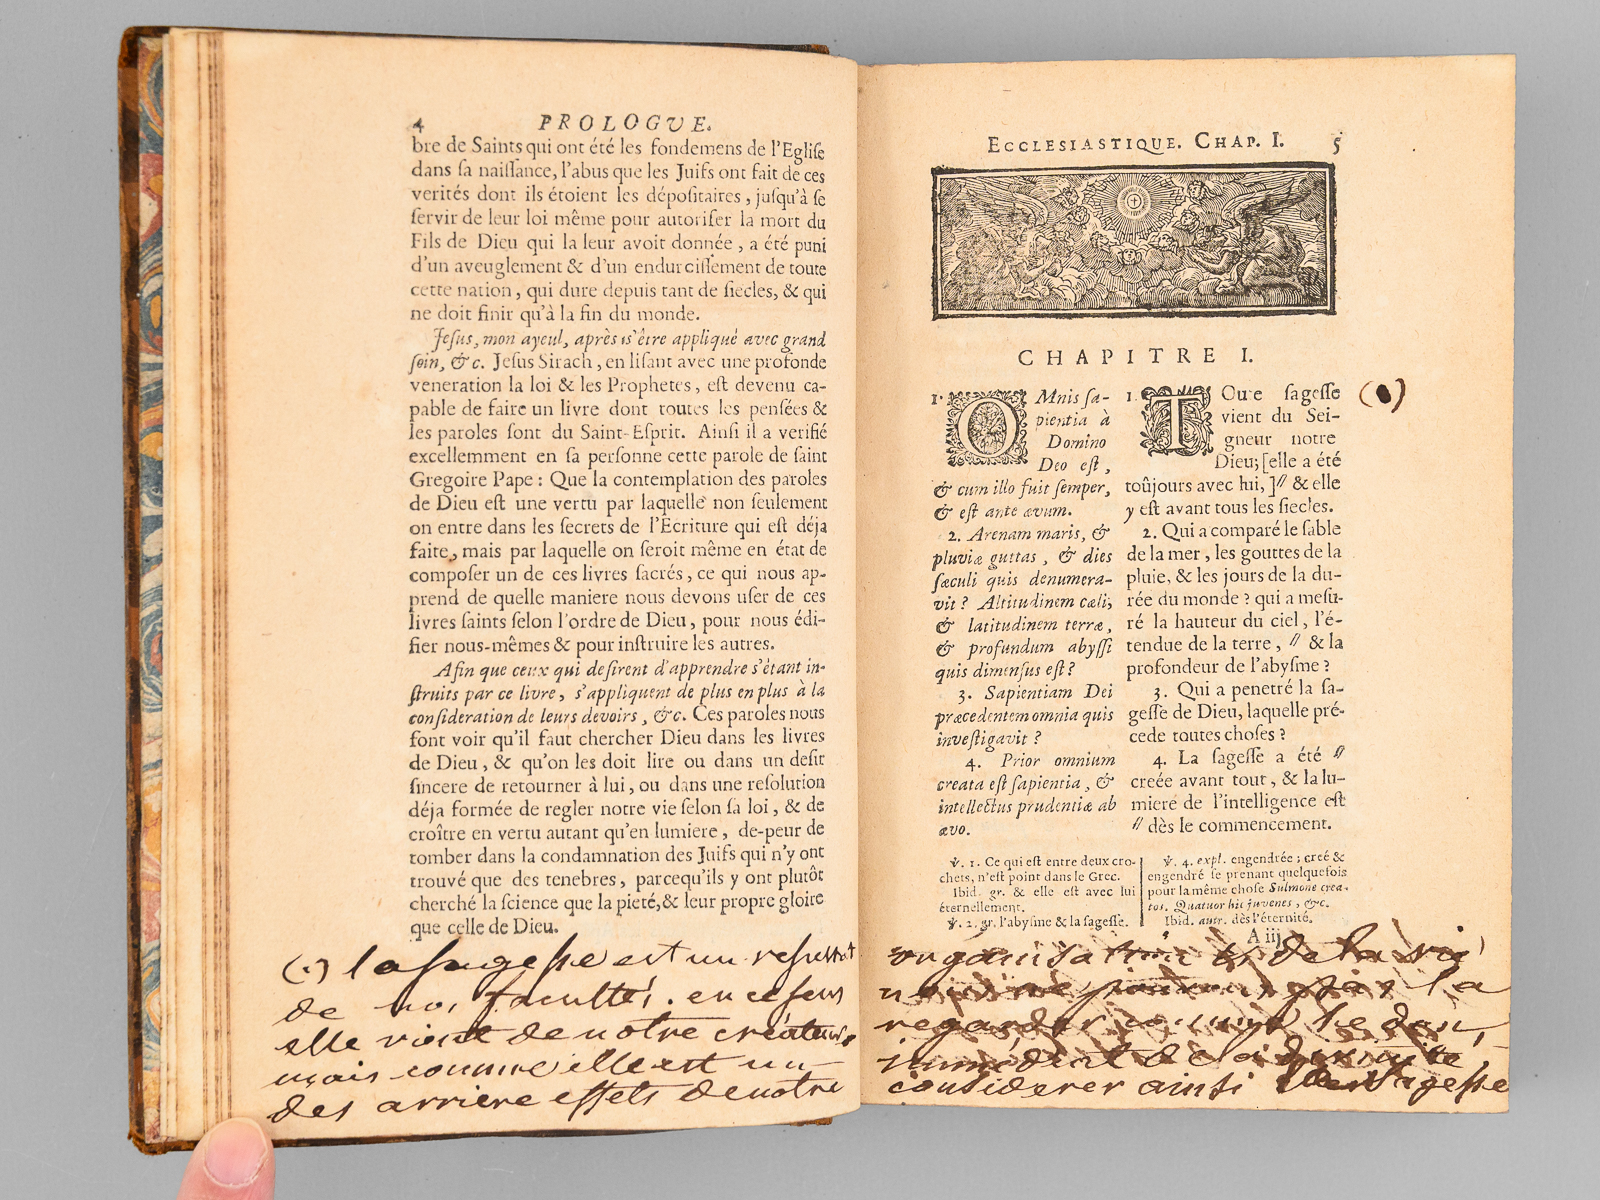 4 PROLOGVE.
bre de Saints qui ont été les fondemens de l'Eglise
dans sa naissance, l'abus que les Juifs ont fait de ces
verités dont ils étoient les dépositaires, jusqu'à se
servir de leur loi même pour autoriser la mort du
Fils de Dieu qui la leur avoit donnée, a été puni
d'un aveuglement & d'un endurcissement de toute
cette nation, qui dure depuis tant de siecles, & qui
ne doit finir qu'à la fin du monde.
Jesus, mon ayeul, après s'être appliqué avec grand
soin, &c. Jesus Sirach, en lisant avec une profonde
veneration la loi & les Prophetes, est devenu ca-
pable de faire un livre dont toutes les pensées &
les paroles sont du Saint-Esprit. Ainsi il a verifié
excellemment en sa personne cette parole de saint
Gregoire Pape: Que la contemplation des paroles
de Dieu est une vertu par laquelle non seulement
on entre dans les secrets de l'Ecriture qui est déja
faite, mais par laquelle on seroit même en état de
composer un de ces livres sacrés, ce qui nous ap-
prend de quelle maniere nous devons user de ces
livres saints selon l'ordre de Dieu, pour nous édi-
fier nous-mêmes & pour instruire les autres.
Afin que ceux qui desirent d'apprendre s'étant in-
struits par ce livre, s'appliquent de plus en plus à la
consideration de leurs devoirs, &c. Ces paroles nous
font voir qu'il faut chercher Dieu dans les livres
de Dieu, & qu'on les doit lire ou dans un desir
sincere de retourner à lui, ou dans une resolution
déja formée de regler notre vie selon sa loi, & de
croître en vertu autant qu'en lumiere, de-peur de
tomber dans la condamnation des Juifs qui n'y ont
trouvé que des tenebres, parcequ'ils y ont plutôt
cherché la science que la pieté, & leur propre gloire
que celle de Dieu.
(.) la sagesse est un resultat
de nos facultés. en ce sens
elle vient de notre créateur.
mais comme elle est un
des arriere effets de notre
ECCLESIASTIQUE. CHAP. I. 5
CHAPITRE I.
1. OMnis sa-
pientia à
Domino
Deo est,
& cum illo fuit semper,
& est ante ævum.
2. Arenam maris, &
pluviæ guttas, & dies
sæculi quis denumera-
vit? Altitudinem cæli,
& latitudinem terræ,
& profundum abyssi
quis dimensus est?
3. Sapientiam Dei
præcedentem omnia quis
investigavit?
4. Prior omnium
creata est sapientia, &
intellectus prudentiæ ab
ævo.
1. TOute sagesse (.)
vient du Sei-
gneur notre
Dieu; [elle a été
toûjours avec lui,] // & elle
y est avant tous les siecles.
2. Qui a comparé le sable
de la mer, les gouttes de la
pluie, & les jours de la du-
rée du monde? qui a mesu-
ré la hauteur du ciel, l'é-
tendue de la terre, // & la
profondeur de l'abysme?
3. Qui a penetré la sa-
gesse de Dieu, laquelle pré-
cede toutes choses?
4. La sagesse a été //
creée avant tout, & la lu-
miere de l'intelligence est
// dès le commencement.
℣. 1. Ce qui est entre deux cro-
chets, n'est point dans le Grec.
Ibid. gr. & elle est avec lui
éternellement.
℣. 2. gr. l'abysme & la sagesse.
℣. 4. expl. engendrée; creé &
engendré se prenant quelquefois
pour la même chose Sulmone crea-
tos. Quatuor hic juvenes, &c.
Ibid. autr. dès l'éternité.
A iij
organisation et de la vie
la
regarder comme le don
immédiat de la
considerer ainsi sagesse